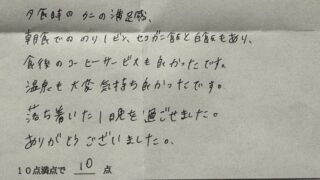 夕食時のカニの満足感、
朝食でののり1ビン、セコガニ飯と白飯もあり、
食後のコーヒーサービスも良かったです。
温泉も大変気持ち良かったです。
落ち着いた1晩を過ごせました。
ありがとうございました。
10点満点で 10 点